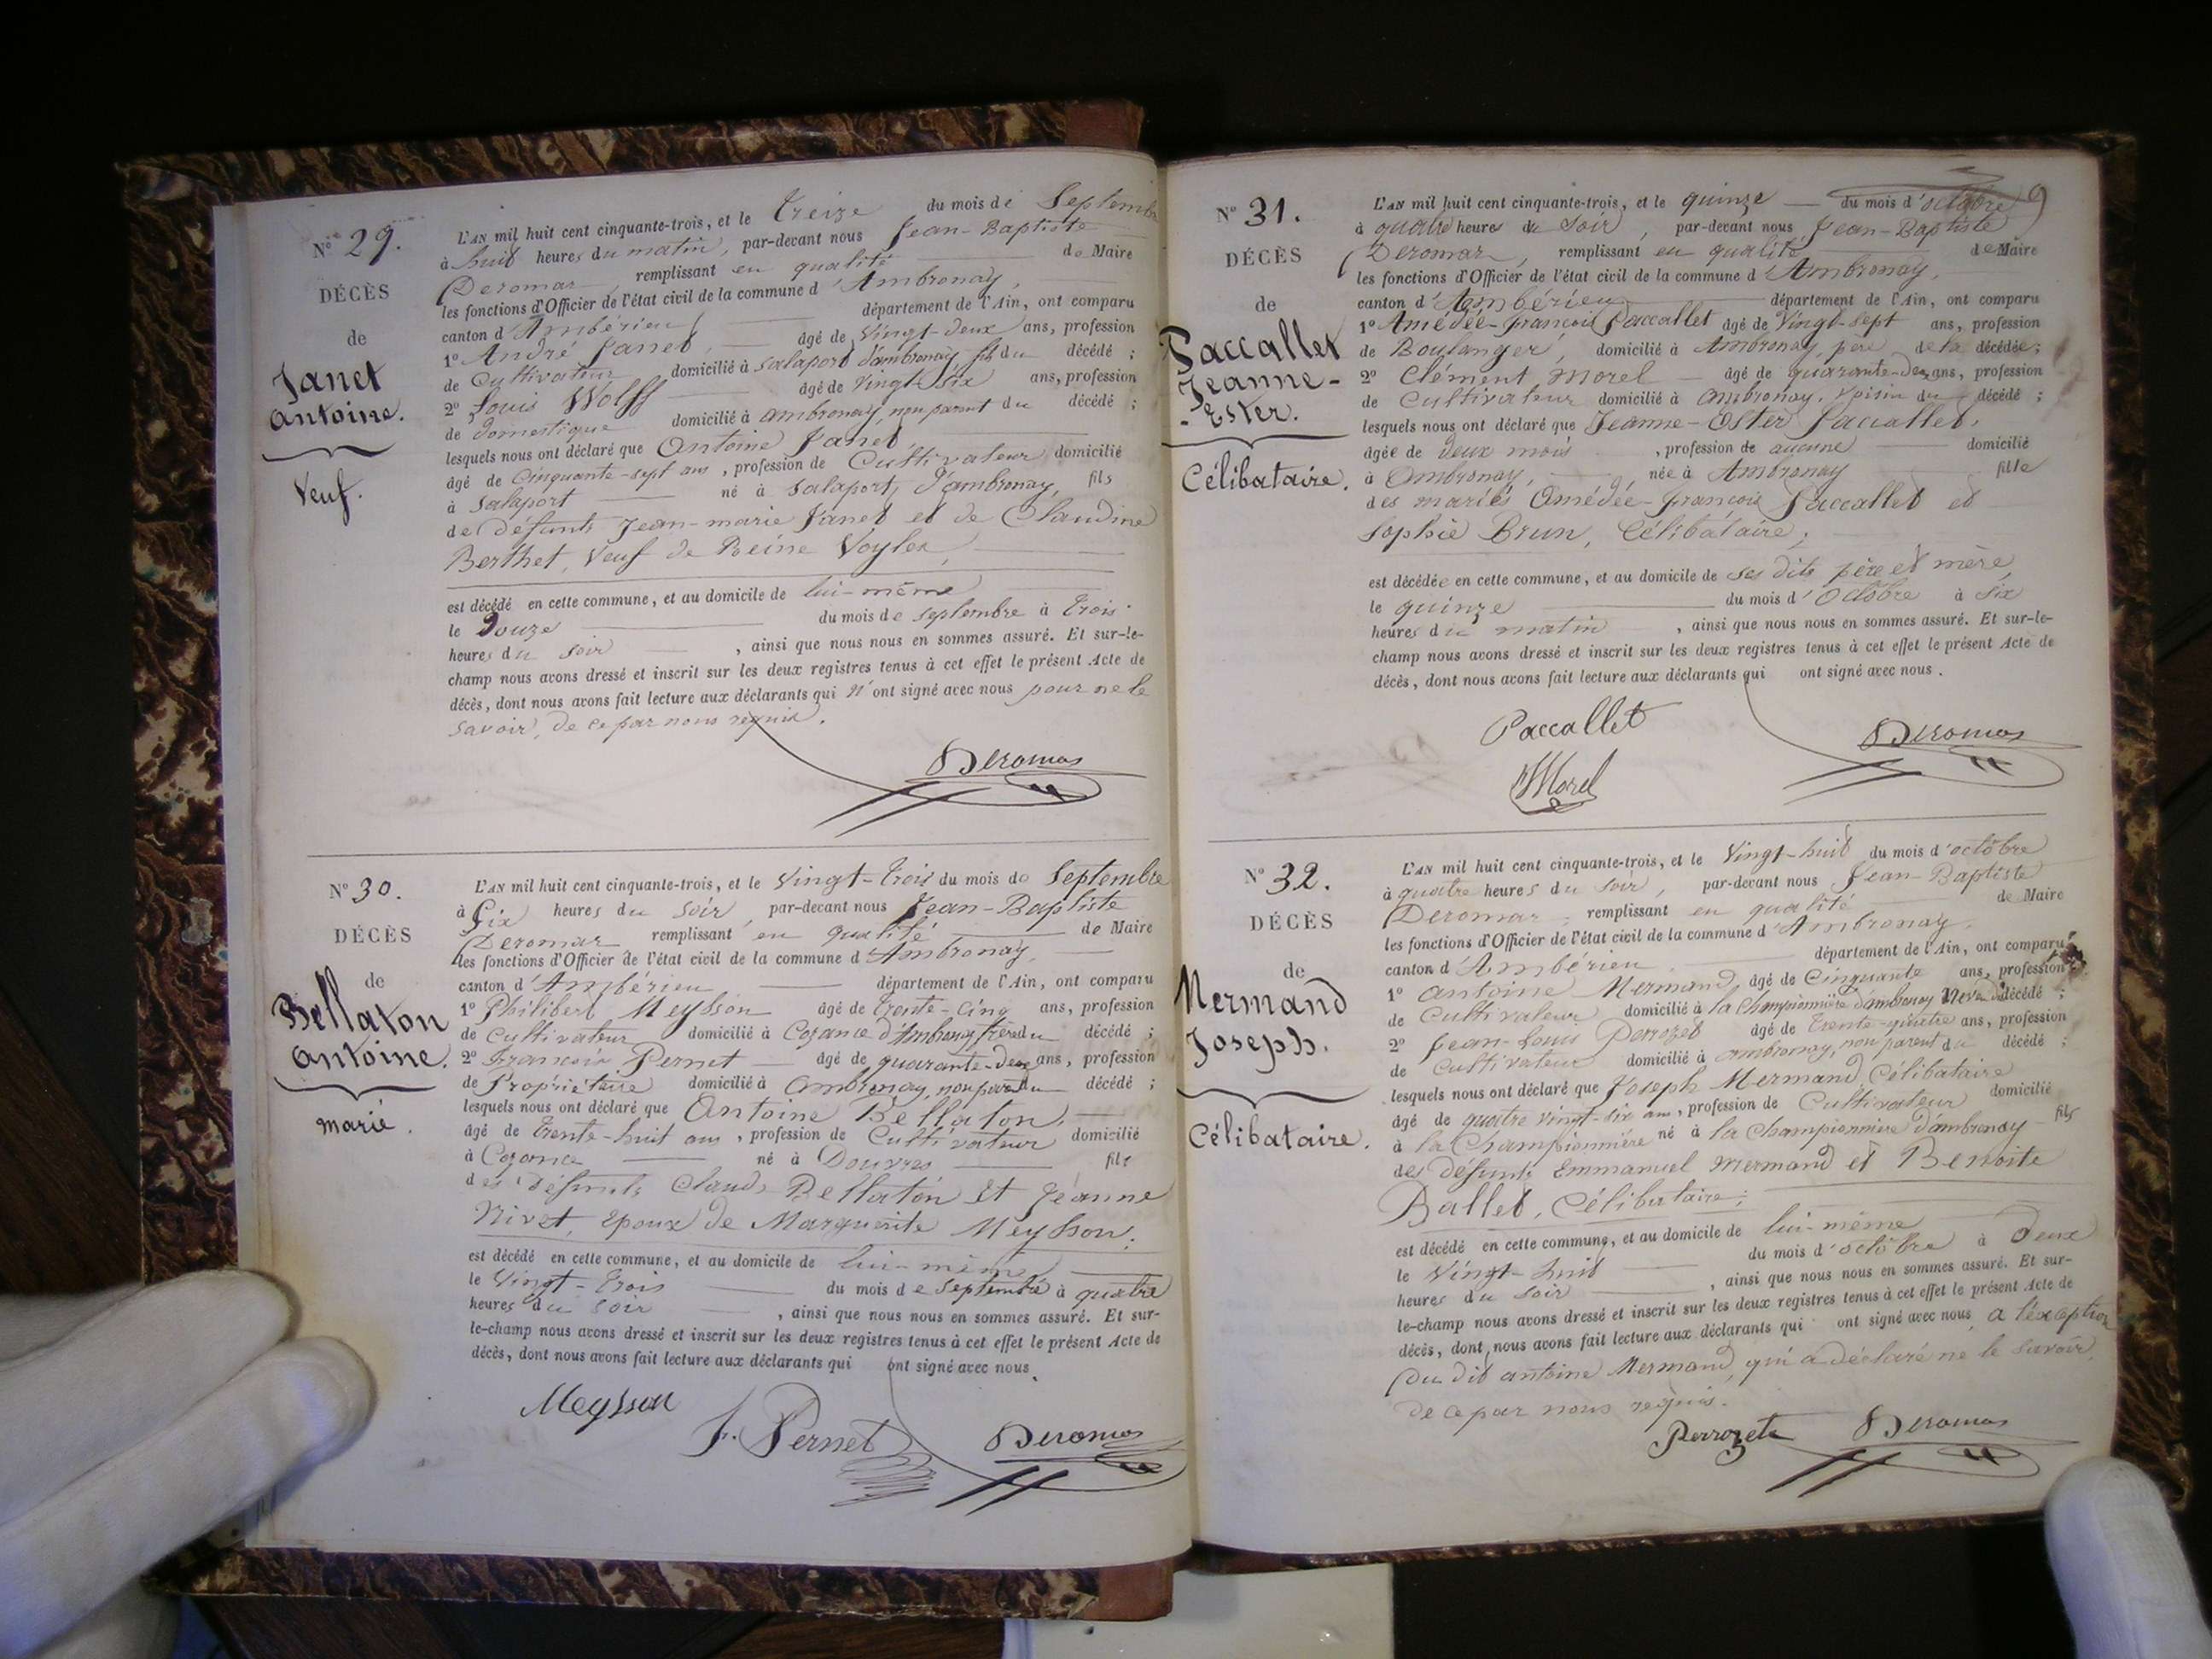 N° 29.
DÉCÈS
de
Janet
Antoine.
Veuf.
L'AN mil huit cent cinquante-trois, et le treize du mois de Septembre
à huit heures du matin, par-devant nous Jean-Baptiste
Deromas, remplissant en qualité de Maire
les fonctions d'Officier de l'état civil de la commune d'Ambronay,
canton d'Ambérieu département de l'Ain, ont comparu
1° André Janet, âgé de Vingt-deux ans, profession
de Cultivateur domicilié à Salaport d'ambronay fils du décédé ;
2° Louis Wolff âgé de Vingt-six ans, profession
de domestique domicilié à ambronay, non parent du décédé ;
lesquels nous ont déclaré que Antoine Janet
âgé de Cinquante-sept ans, profession de Cultivateur domicilié
à Salaport né à Salaport, d'ambronay, fils
de défunts Jean-marie Janet et de Claudine
Berthet, Veuf de Reine
est décédé en cette commune, et au domicile de lui-même
le Douze du mois de septembre à trois
heures du soir, ainsi que nous nous en sommes assuré. Et sur-le-
champ nous avons dressé et inscrit sur les deux registres tenus à cet effet le présent Acte de
décès, dont nous avons fait lecture aux déclarants qui n'ont signé avec nous pour ne le
savoir, de ce par nous requis.
Deromas
N° 30.
DÉCÈS
de
Bellaton
Antoine.
marié.
L'AN mil huit cent cinquante-trois, et le Vingt-trois du mois de Septembre
à Six heures du soir, par-devant nous Jean-Baptiste
Deromas remplissant en qualité de Maire
les fonctions d'Officier de l'état civil de la commune d'Ambronay,
canton d'Ambérieu département de l'Ain, ont comparu
1° Philibert Meysson âgé de trente-cinq ans, profession
de Cultivateur domicilié à Cozance d'Ambronay frère du décédé ;
2° François Pernet âgé de quarante-deux ans, profession
de Propriétaire domicilié à Ambronay, non parent du décédé ;
lesquels nous ont déclaré que Antoine Bellaton,
âgé de trente-huit ans, profession de Cultivateur domicilié
à Cozance né à Douvres fils
des défunts Claude Bellaton et Jeanne
Nivet, Epoux de Marguerite Meysson ;
est décédé en cette commune, et au domicile de lui-même
le Vingt-trois du mois de Septembre à quatre
heures du soir, ainsi que nous nous en sommes assuré. Et sur-
le-champ nous avons dressé et inscrit sur les deux registres tenus à cet effet le présent Acte de
décès, dont nous avons fait lecture aux déclarants qui ont signé avec nous.
Meysson
F. Pernet
Deromas
9
N° 31.
DÉCÈS
de
Paccallet
Jeanne-
-Ester.
Célibataire.
L'AN mil huit cent cinquante-trois, et le quinze du mois d'octobre
à quatre heures du soir, par-devant nous Jean-Baptiste
Deromas, remplissant en qualité de Maire
les fonctions d'Officier de l'état civil de la commune d'Ambronay,
canton d'Ambérieu département de l'Ain, ont comparu
1° Amédée-François Paccallet âgé de Vingt-sept ans, profession
de Boulanger, domicilié à Ambronay, père de la décédée ;
2° Clément Morel âgé de quarante-deux ans, profession
de Cultivateur domicilié à Ambronay, voisin du décédé ;
lesquels nous ont déclaré que Jeanne-Ester Paccallet,
âgée de deux mois, profession de aucune domicilié
à Ambronay, née à Ambronay fille
des mariés Amédée-François Paccallet et
Sophie Brun, Célibataire ;
est décédée en cette commune, et au domicile de ses dits père et mère,
le quinze du mois d'Octobre à six
heures du matin, ainsi que nous nous en sommes assuré. Et sur-le-
champ nous avons dressé et inscrit sur les deux registres tenus à cet effet le présent Acte de
décès, dont nous avons fait lecture aux déclarants qui ont signé avec nous.
Paccallet
Morel
Deromas
N° 32.
DÉCÈS
de
Mermand
Joseph.
Célibataire.
L'AN mil huit cent cinquante-trois, et le Vingt-huit du mois d'octobre
à quatre heures du soir, par-devant nous Jean-Baptiste
Deromas, remplissant en qualité de Maire
les fonctions d'Officier de l'état civil de la commune d'Ambronay,
canton d'Ambérieu département de l'Ain, ont comparu
1° Antoine Mermand, âgé de Cinquante ans, profession
de Cultivateur domicilié à la Championnière d'ambronay Neveu du décédé ;
2° Jean-Louis Perrozet âgé de trente-quatre ans, profession
de Cultivateur domicilié à ambronay, non parent du décédé ;
lesquels nous ont déclaré que Joseph Mermand, Célibataire
âgé de quatre vingt-six ans, profession de Cultivateur domicilié
à la Championnière né à la Championnière d'ambronay fils
des défunts Emmanuel Mermand et Benoite
Ballet, Célibataire ;
est décédé en cette commune, et au domicile de lui-même
le Vingt-huit du mois d'octobre à Deux
heures du soir, ainsi que nous nous en sommes assuré. Et sur-
le-champ nous avons dressé et inscrit sur les deux registres tenus à cet effet le présent Acte de
décès, dont nous avons fait lecture aux déclarants qui ont signé avec nous a l'exception
du dit antoine Mermand, qui a déclaré ne le savoir,
de ce par nous requis.
Perrozet
Deromas